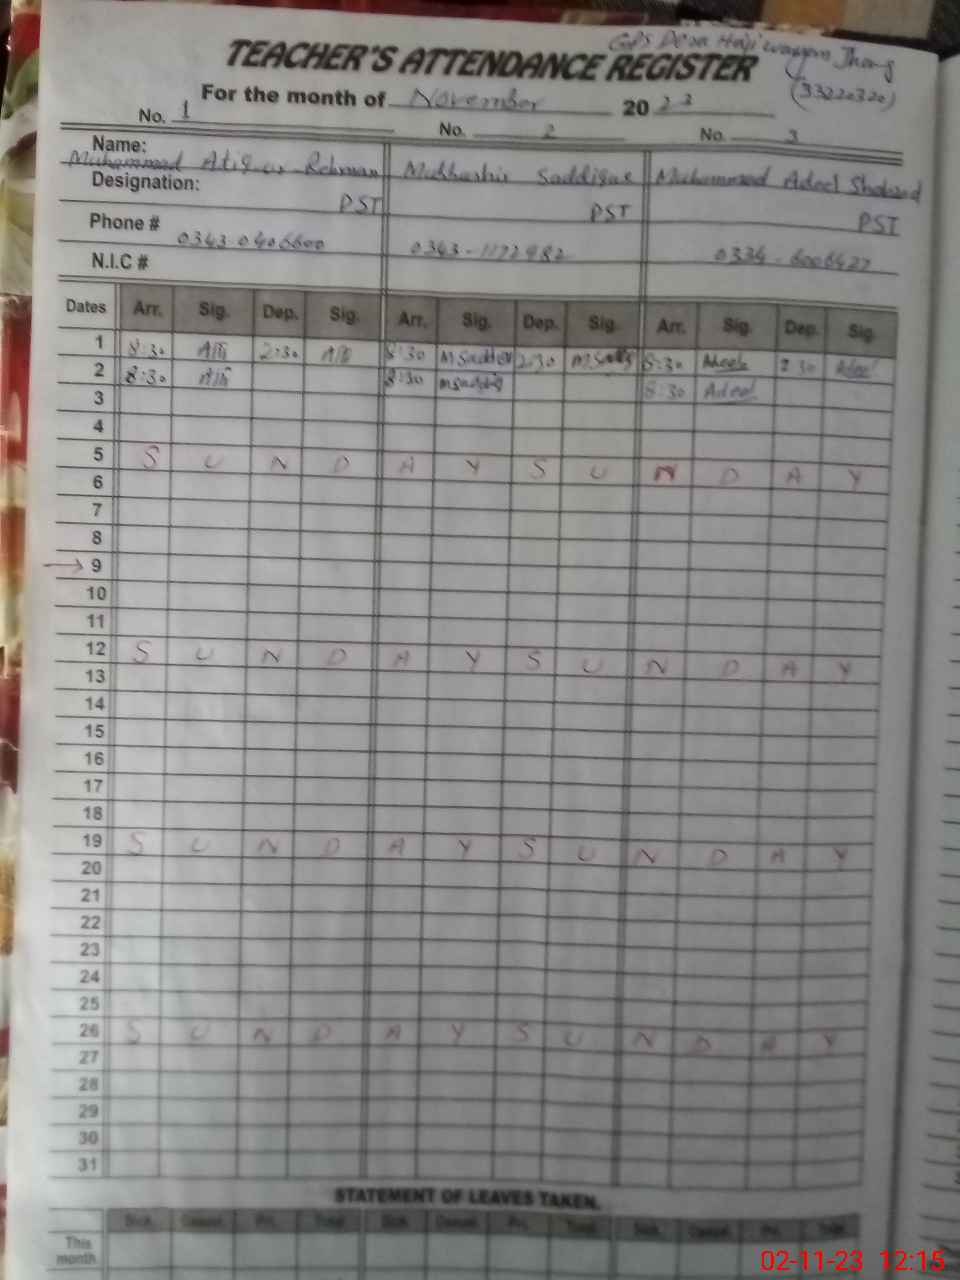 GPS Deoa Haji waryam Jhang
TEACHER'S ATTENDANCE REGISTER
(33220320)
For the month of November 2023
No. 1 No. 2 No. 3
Name: Muhammad Atiq ur Rehman Mubbashir Saddique Muhammad Adeel Shahzad
Designation: PST PST PST
Phone # 0343 0406600 0343-1172982 0334-6006427
N.I.C #
Dates Arr. Sig. Dep. Sig. Arr. Sig. Dep. Sig. Arr. Sig. Dep. Sig.
1 8:30 2:30 8:30 2:30 8:30 Adeel 2 30 Adeel
2 8:30 8:30 8:30 Adeel
3
4
5 S U N D A Y S U N D A Y
6
7
8
→ 9
10
11
12 S U N D A Y S U N D A Y
13
14
15
16
17
18
19 S U N D A Y S U N D A Y
20
21
22
23
24
25
26 S U N D A Y S U N D A Y
27
28
29
30
31
STATEMENT OF LEAVES TAKEN.
Sick. Casual. Pri. Total. Sick. Casual. Pri. Total. Sick. Casual. Pri. Total.
This month
02-11-23 12:15